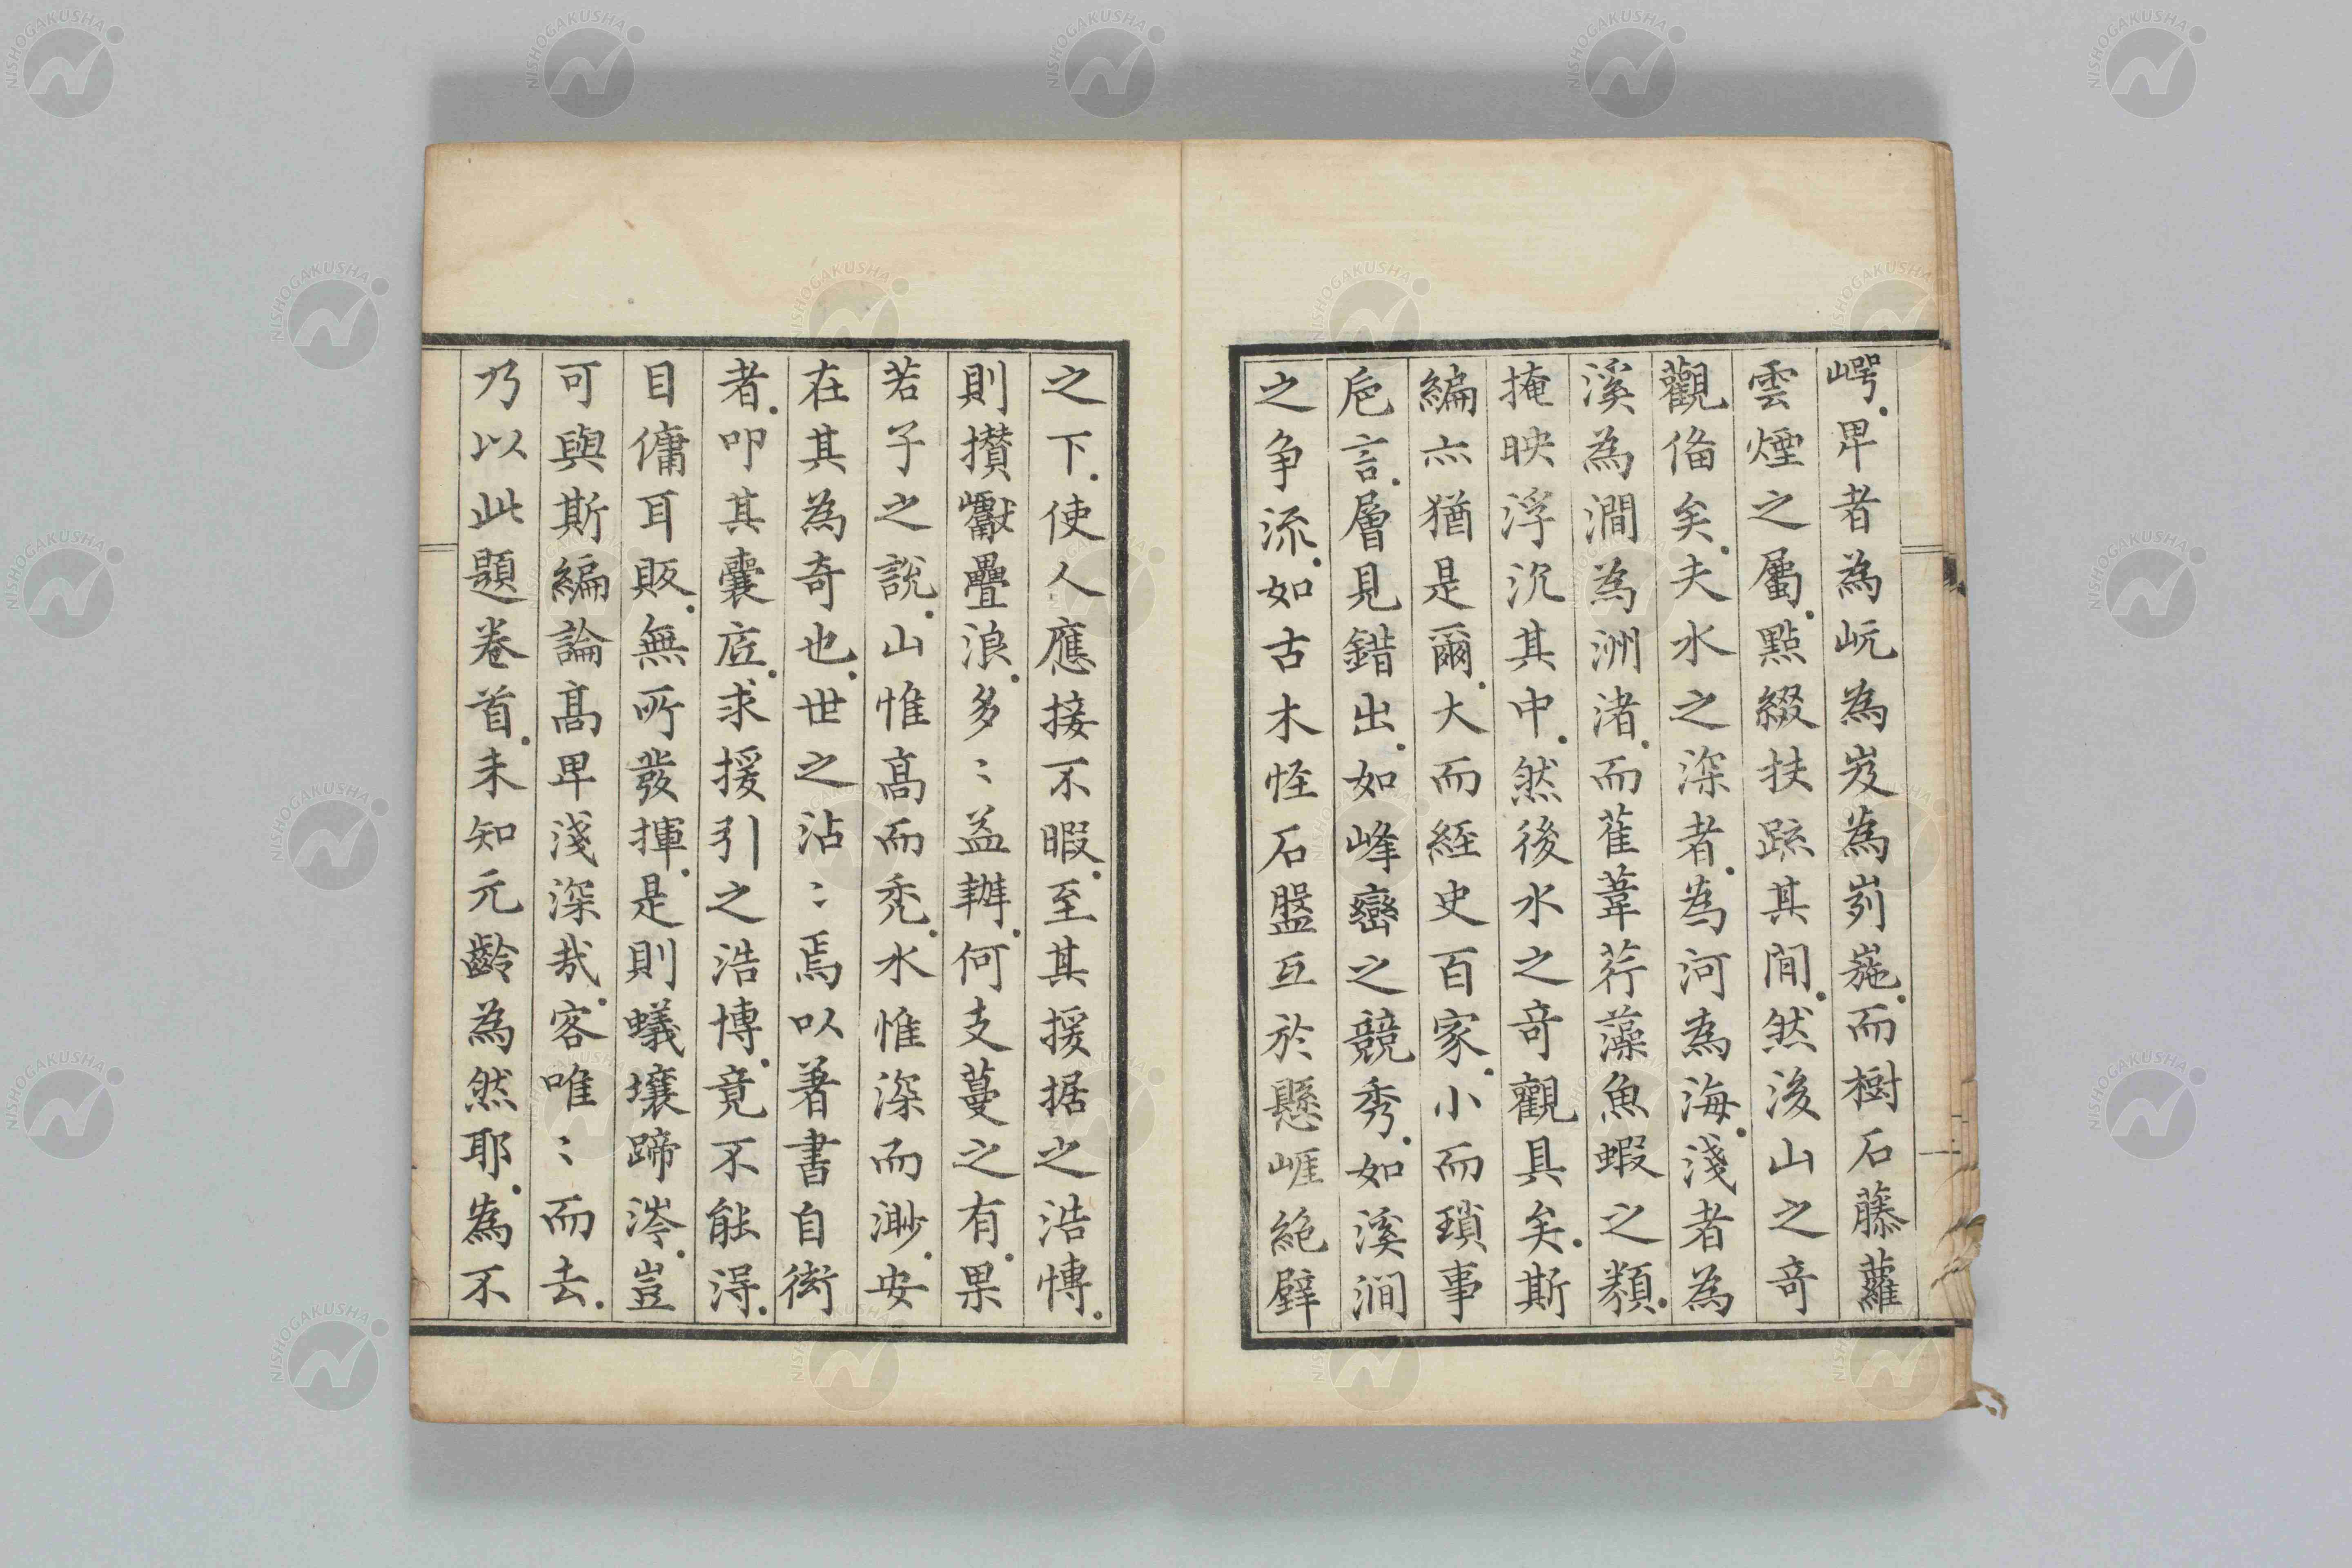 崿。卑者為岏為岌為峛崺。而樹石藤蘿
雲煙之屬。點綴扶疏其間。然後山之奇
觀俻矣。夫水之深者。為河為海。淺者為
溪為澗為洲渚。而萑葦荇藻魚蝦之類。
掩映浮沉其中。然後水之奇觀具矣。斯
編亦猶是爾。大而經史百家。小而瑣事
卮言。層見錯出。如峰巒之競秀。如溪澗
之爭流。如古木怪石盤互於懸崕絕壁
之下。使人應接不暇。至其援据之浩博。
則攢巘疊浪。多〻益辦。何支蔓之有。果
若子之說。山惟高而禿。水惟深而渺。安
在其為奇也。世之沾〻焉以著書自衒
者。叩其囊底。求援引之浩博。竟不能得。
目傭耳販。無所發揮。是則蟻壤蹄涔。豈
可與斯編論高卑淺深哉。客唯〻而去。
乃以此題卷首。未知元齡為然耶。為不
NISHOGAKUSHA